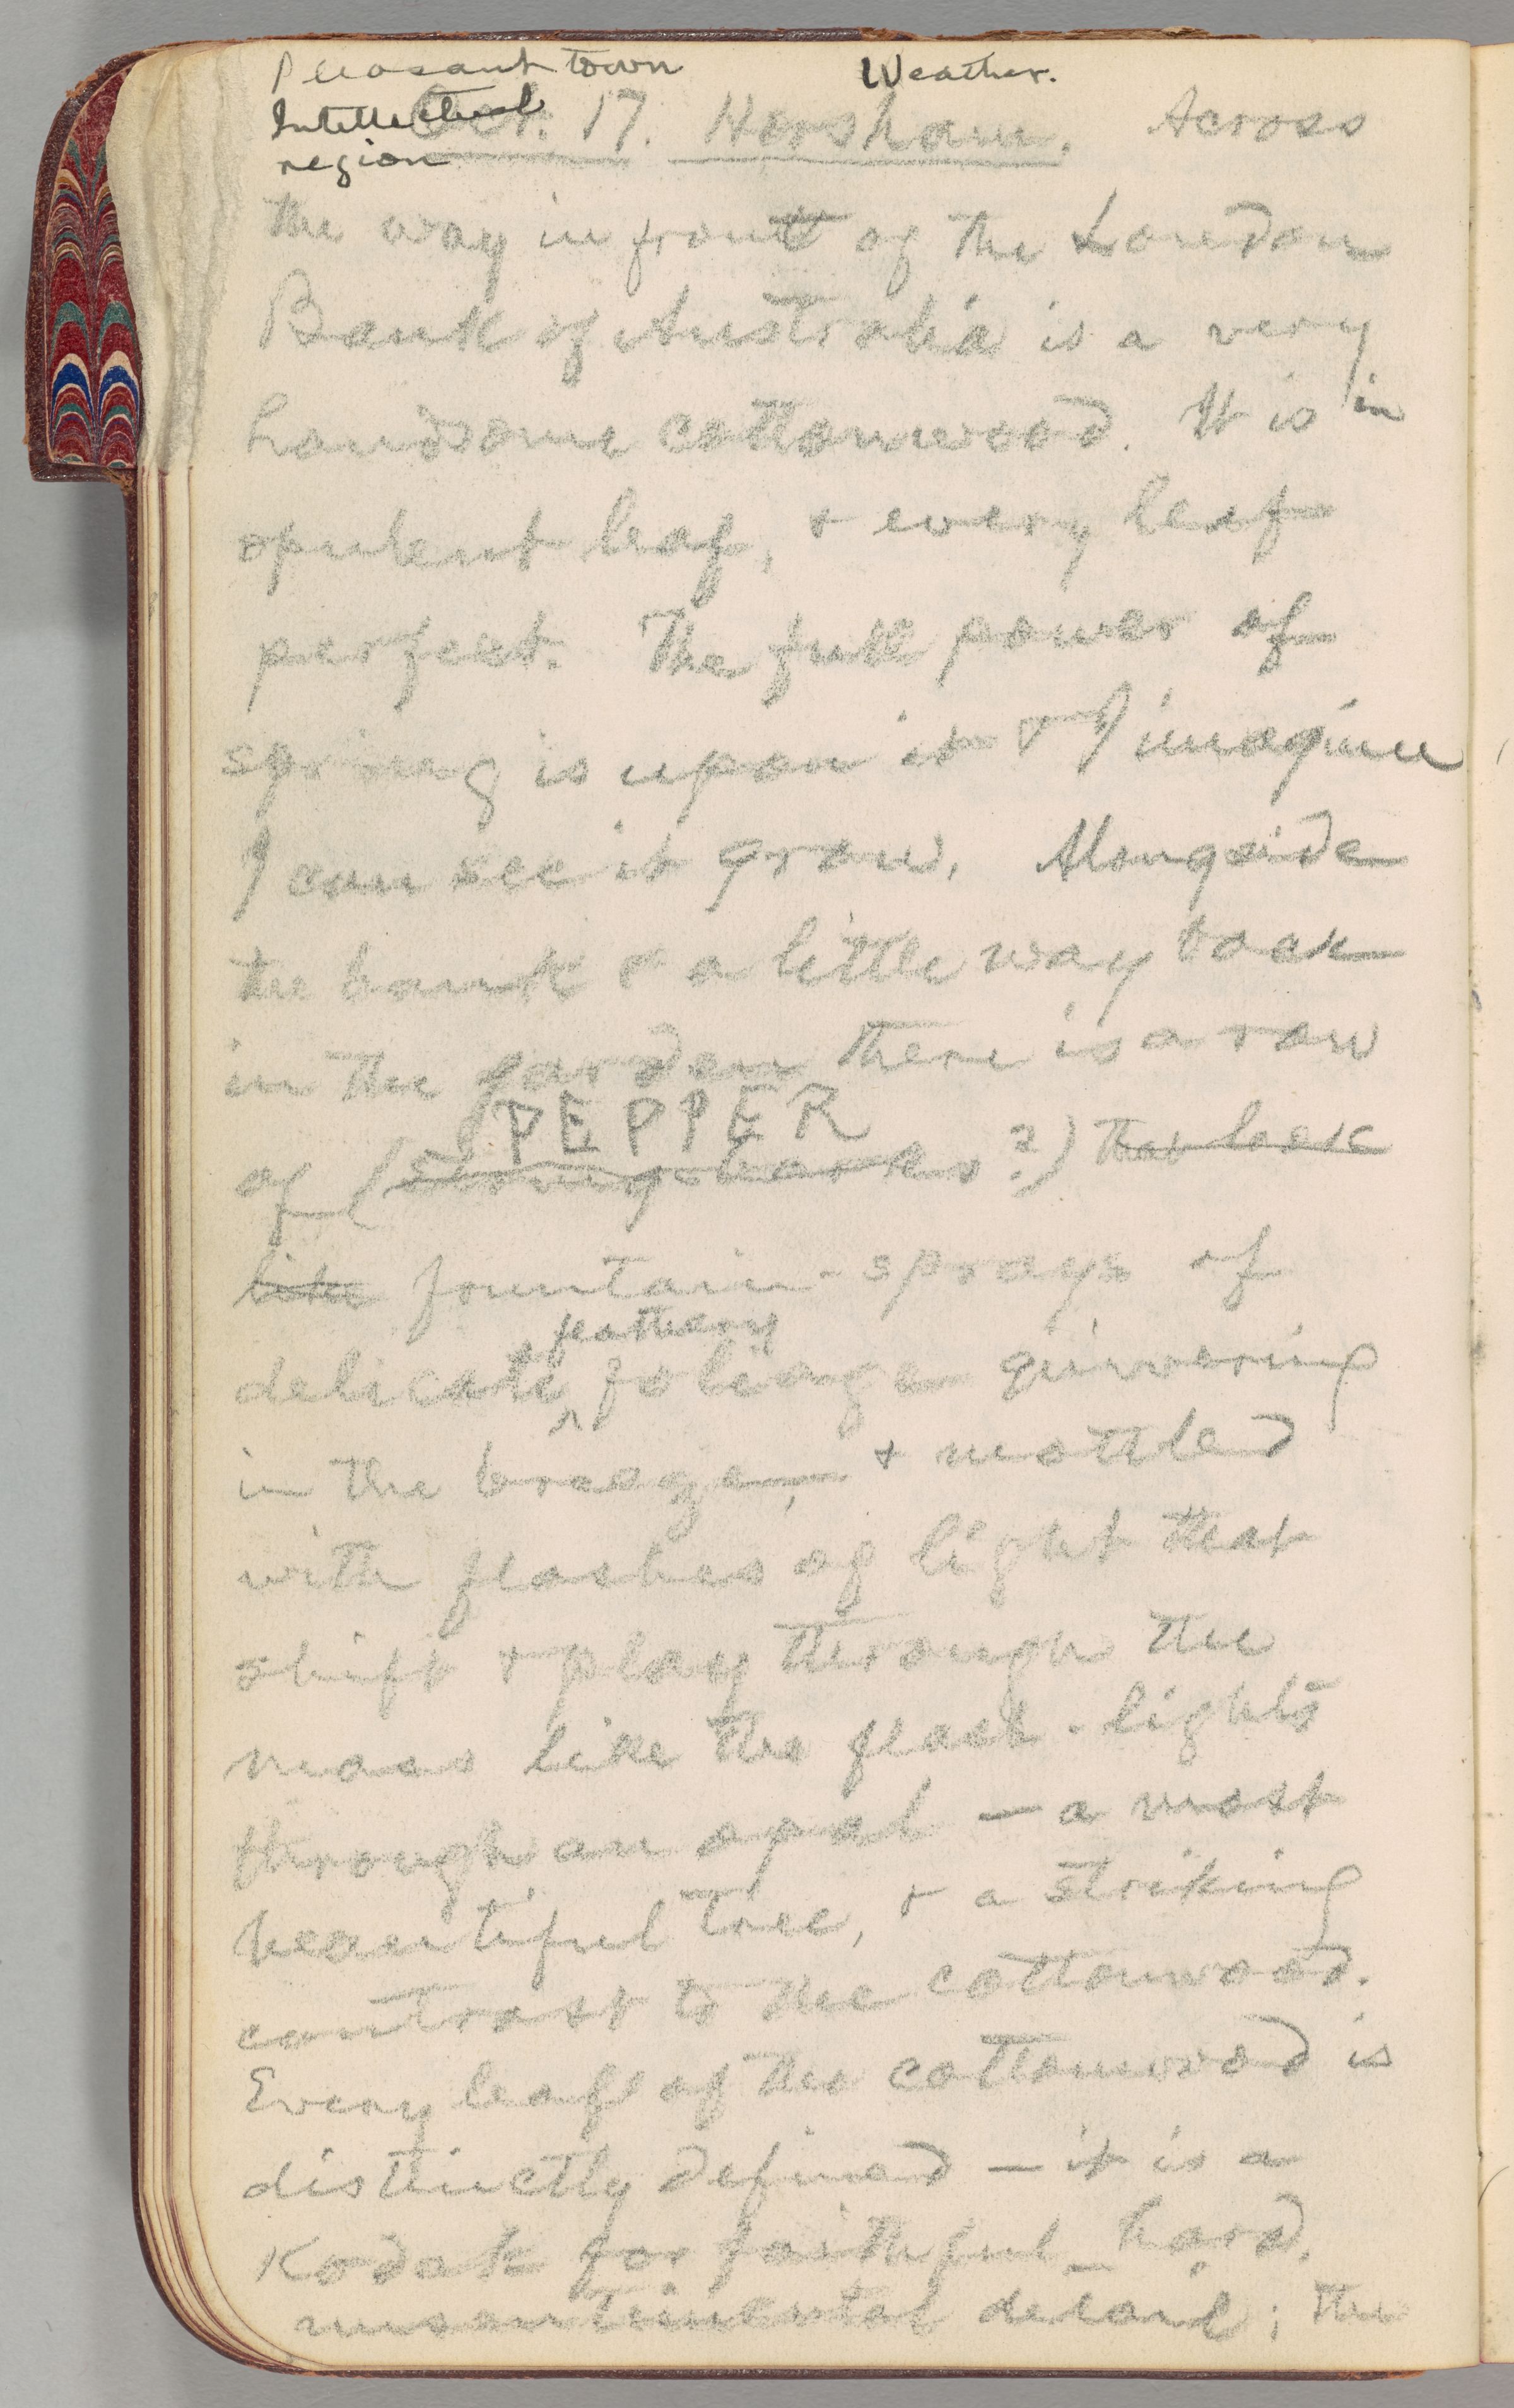 Pleasant town Weather.
Intellectual
region
Oct. 17. Horsham. Across
the way in front of the London
Bank of Australia is a very
handsome cottonwood. It is in
opulent leaf, & every leaf
perfect. The full power of
spring is upon it & I imagine
I can see it grow. Alongside
the bank & a little way back
in the garden there is a row
PEPPER
of (strong-barks?) that look
like fountain-sprays of
feathery
delicate foliage quivering
in the breeze, & mottled
with flashes of light that
shift & play through the
mass like the flash-lights
through an opal — a most
beautiful tree, & a striking
contrast to the cottonwood.
Every leaf of the cottonwood is
distinctly defined — it is a
Kodak for faithful, hard,
unsentimental detail; the